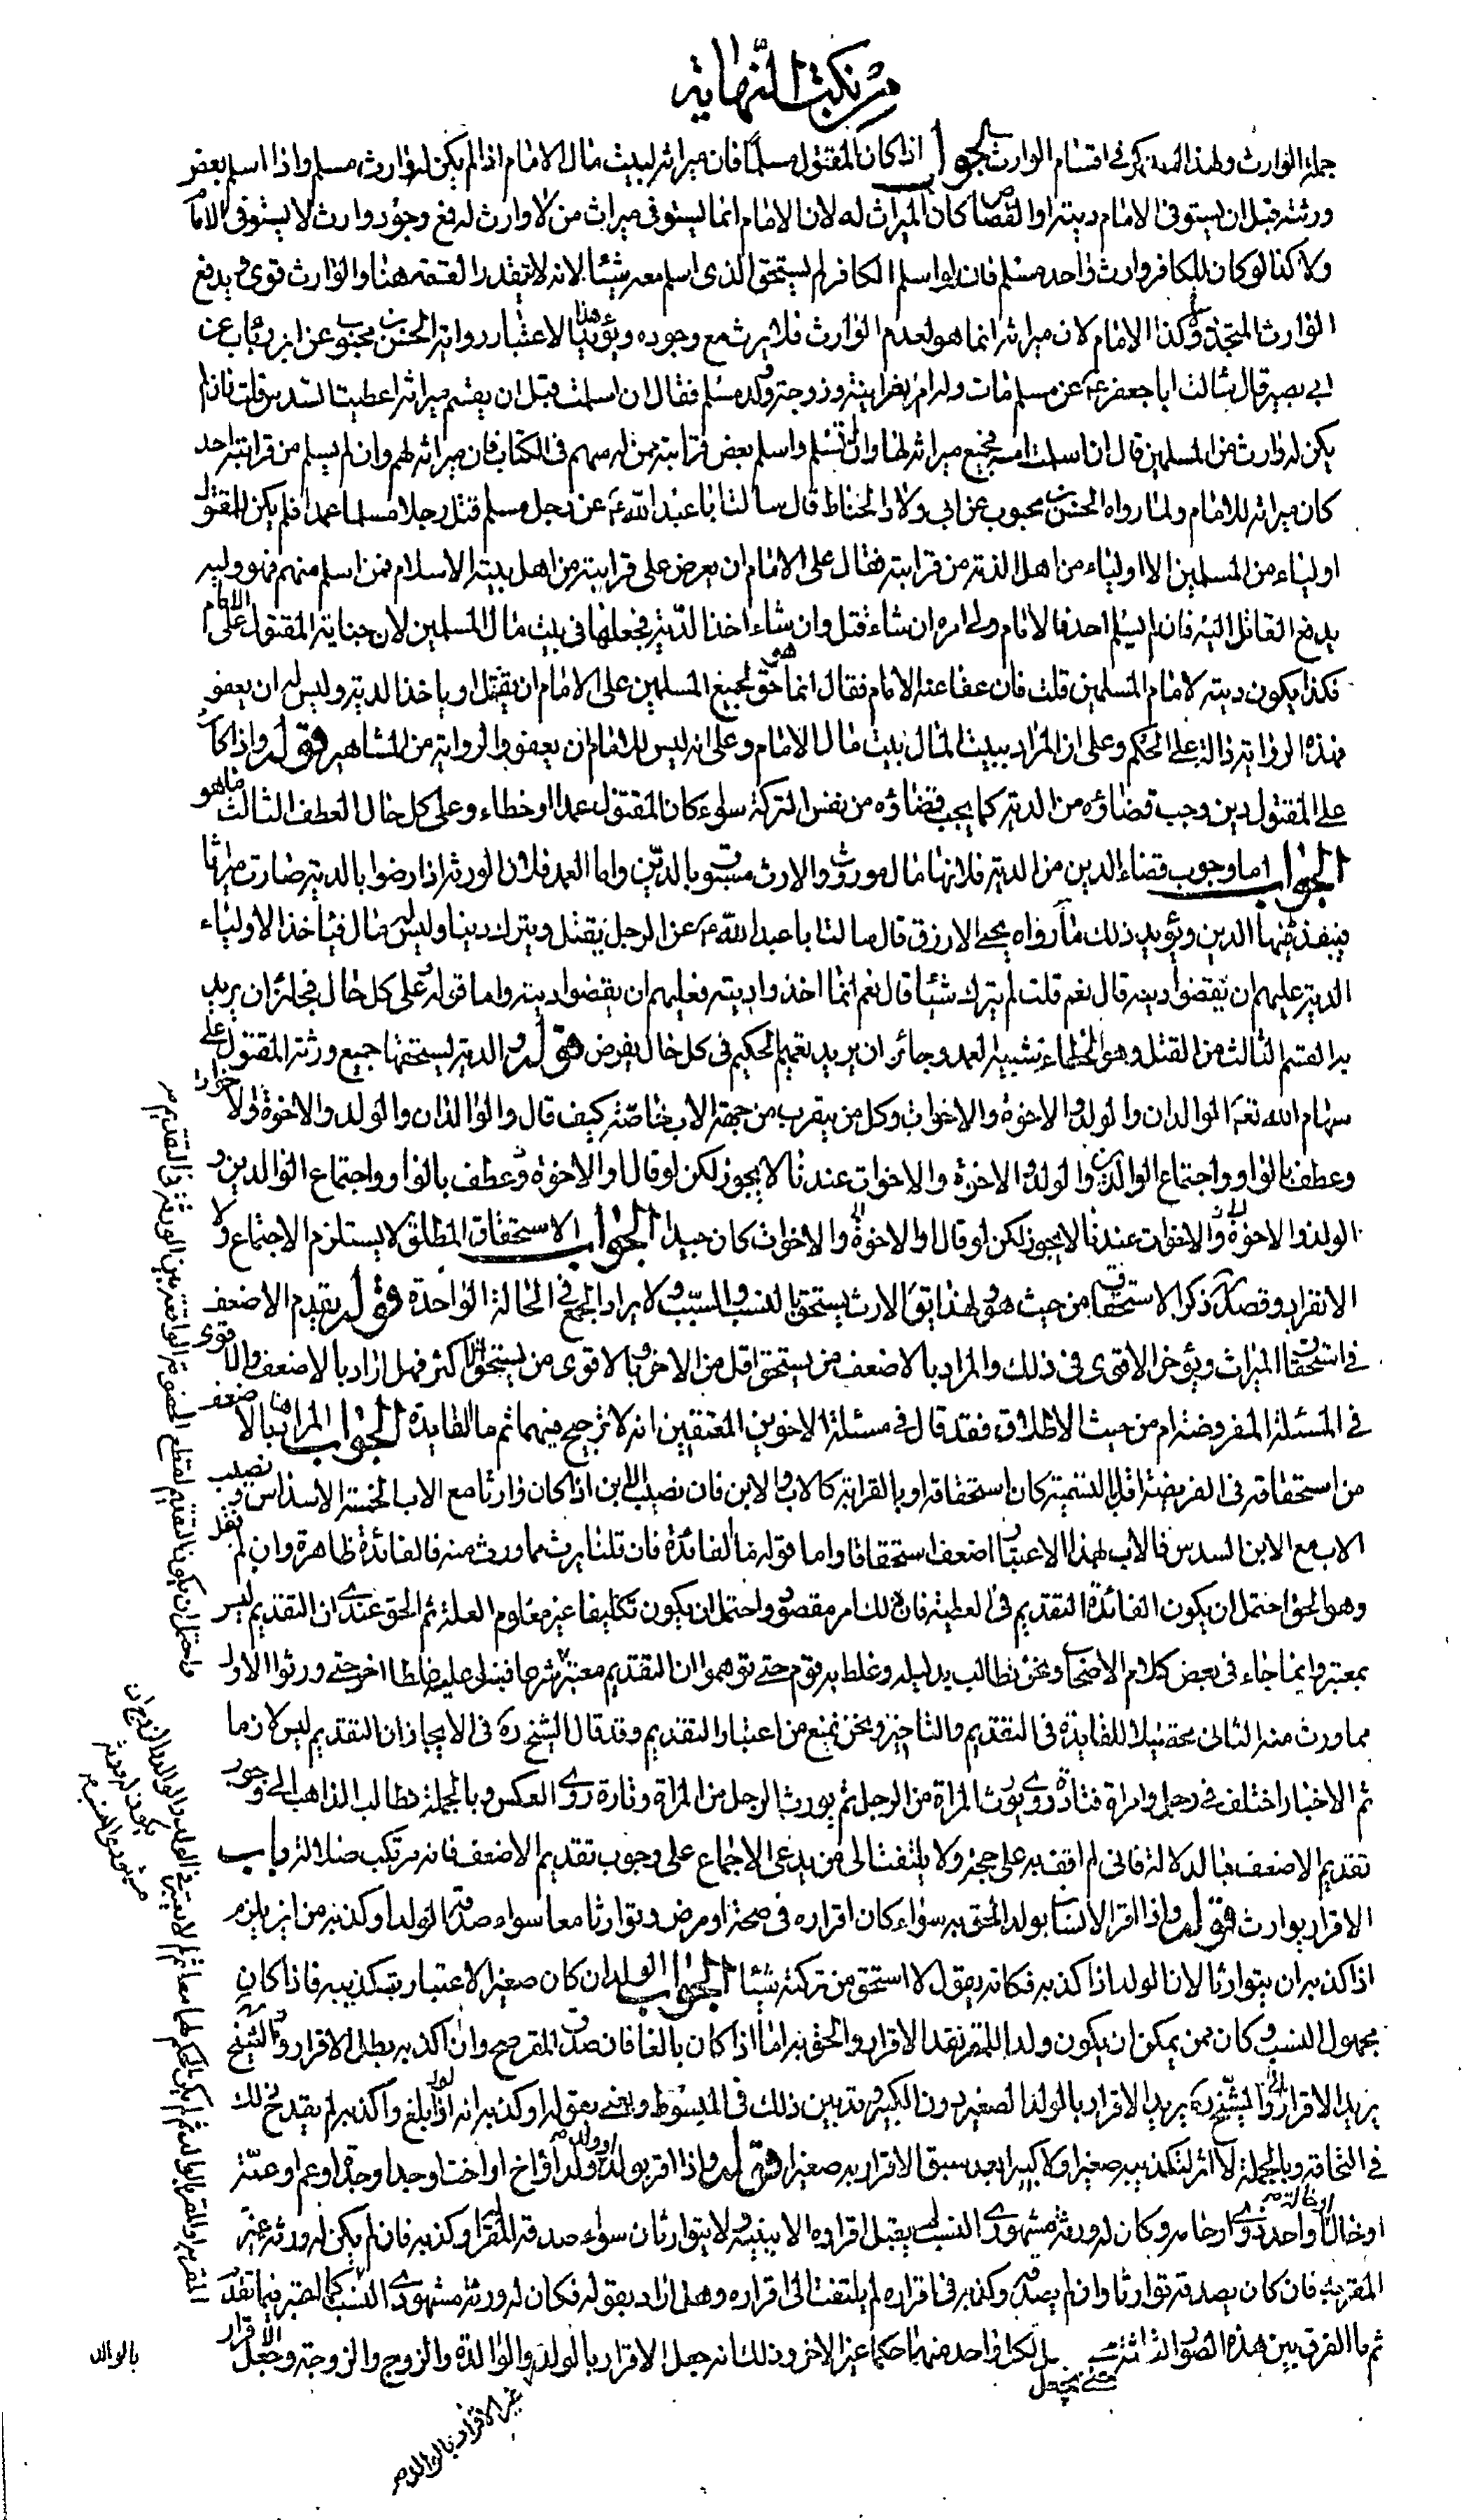 من نكت النهاية
جملة الوارث ولهذا لم يذكر في اقسام الوارث الجواب اذا كان المقتول مسلما فان ميراثه لبيت مال الامام اذا لم يكن له وارث مسلم واذا اسلم بعض
ورثته قبل ان يستوفى الامام ديته او القصاص كان الميراث له لان الامام انما يستوفى ميراث من لا وارث له فمع وجود وارث لا يستوفى الامام
ولا كذا لو كان للكافر وارث واحد مسلم فانه لو اسلم الكافر لم يستحق الذى اسلم معه شيئا لانه لا يتقدر القسمة هنا والوارث قوى فيدفع
الوارث المتجدد وكذا الامام لان ميراثه انما هو لعدم الوارث فلا يرث مع وجوده ويؤيد هذا الاعتبار رواية الحسن بن محبوب عن ابن رئاب عن
ابى بصير قال سالت ابا جعفر ع عن مسلم مات وله ام نصرانية وزوجة وولد مسلم فقال ان اسلمت قبل ان يقسم ميراثه اعطيت السدس قلت فان لم
يكن له وارث من المسلمين قال ان اسلمت امه فجميع ميراثه لها وان لم تسلم واسلم بعض قرابته ممن له سهم فى الكتاب فان ميراثه لهم وان لم يسلم من قرابته احد
كان ميراثه للامام ولما رواه الحسن بن محبوب عن ابى ولاد الحناط قال سالت ابا عبد الله ع عن رجل مسلم قتل رجلا مسلما عمدا فلم يكن للمقتول
اولياء من المسلمين الا اولياء من اهل الذمة من قرابته فقال على الامام ان يعرض على قرابته من اهل بيته الاسلام فمن اسلم منهم فهو وليه
يدفع القاتل اليه فان لم يسلم احد فالامام ولى امره ان شاء قتل وان شاء اخذ الدية فجعلها فى بيت مال المسلمين لان جناية المقتول على الامام
فكذا يكون ديته لامام المسلمين قلت فان عفا عنه الامام فقال انما هو حق لجميع المسلمين على الامام ان يقتل او ياخذ الدية وليس له ان يعفو
فهذه الرواية دالة على الحكم وعلى ان المراد ببيت المال بيت مال الامام وعلى انه ليس للامام ان يعفو والرواية من المشاهير قوله واذا كان
على المقتول دين وجب قضاؤه من الدية كما يجب قضاؤه من نفس التركة سواء كان المقتول عمدا او خطاء وعلى كل حال العطف الثالث ما هو
الجواب اما وجوب قضاء الدين من الدية فلانها مال موروث والارث مسبوق بالدين واما العمد فلان الورثة اذا رضوا بالدية صارت ميراثا
فينفذ منها الدين ويؤيد ذلك ما رواه يحيى الازرق قال سالت ابا عبد الله ع عن الرجل يقتل ويترك دينا وليس له مال فياخذ الاولياء
الدية عليهم ان يقضوا دينه قال نعم قلت لم يترك شيئا قال نعم انما اخذوا ديته فعليهم ان يقضوا دينه واما قوله وعلى كل حال فجائز ان يريد
به القسم الثالث من القتل وهو الخطاء شبيه العمد وجائز ان يريد تعميم الحكم فى كل حال يفرض قوله والدية يستحقها جميع ورثة المقتول على
سهام الله تع الوالدان والولد والاخوة والاخوات وكل من يتقرب من جهة الاب خاصة كيف قال والوالدان والولد والاخوة والاخوات
وعطف بالواو واجتماع الوالدين والولد والاخوة والاخوات عندنا لا يجوز لكن لو قال او الاخوة وعطف بالواو واجتماع الوالدين و
الولد والاخوة والاخوات عندنا لا يجوز لكن لو قال او الاخوة والاخوات كان جيدا الجواب الاستحقاق المطلق لا يستلزم الاجتماع ولا
الانفراد وقصده ذكر الاستحقاق من حيث هو ولهذا يقال الارث يستحق بالنسب والسبب ولا يراد الجمع فى الحالة الواحدة قوله يقدم الاضعف
فى استحقاق الميراث ويؤخر الاقوى فى ذلك والمراد بالاضعف من يستحق اقل من الاخر وبالاقوى من يستحق اكثر فهل اراد بالاضعف والاقوى
فى المسئلة المفروضة ام من حيث الاطلاق فقد قال فى مسئلة الاخوين المعتقين انه لا ترجيح فيهما ثم ما الفايدة الجواب المراد هنا بالاضعف
من استحقاقه فى الفريضة اقل بالتسمية كان استحقاقه او بالقرابة كالاب والابن فان نصيب الابن اذا كان وارثا مع الاب الخمسة الاسداس ونصيب
الاب مع الابن السدس فالاب بهذا الاعتبار اضعف استحقاقا واما قوله ما الفائدة فان قلنا يرث مما ورث منه فالفائدة ظاهرة وان لم نقل
وهو الحق احتمل ان يكون الفائدة التقديم فى العطية فان ذلك امر مقصود واحتمل ان يكون تكليفا غير معلوم العلة ثم الحق عندى ان التقديم ليس
بمعتبر وانما جاء فى بعض كلام الاصحاب ونحن نطالب بدليله وغلط به قوم حتى توهموا ان التقديم معتبر شرعا فبنوا عليه غلطا اخر حتى ورثوا الاول
مما ورث منه الثانى تحقيقا للفايدة فى التقديم والتاخير ونحن نمنع من اعتبار التقديم وقد قال الشيخ ره فى الايجاز ان التقديم ليس لازما
ثم الاخبار اختلف فى رجل وامراة فتارة روى يورث المراة من الرجل ثم يورث الرجل من المراة وتارة روى العكس وبالجملة نطالب الذاهب الى وجوب
تقديم الاضعف بالدلالة فانى لم اقف به على حجة ولا يلتفت الى من يدعى الاجماع على وجوب تقديم الاضعف فانه مرتكب ضلالة باب
الاقرار بوارث قوله واذا اقر الانسان بولد الحق به سواء كان اقراره فى صحة او مرض وتوارثا معا سواء صدقه الولد او كذبه من اين يلزم
اذا كذبه ان يتوارثا لان الولد اذا كذبه فكانه يقول لا استحق من تركته شيئا الجواب الولد ان كان صغيرا لا اعتبار بتكذيبه فاذا كان
مجهول النسب وكان ممن يمكن ان يكون ولدا للمقر نفذ الاقرار والحق به اما اذا كان بالغا فان صدق المقر صح وان اكذبه بطل الاقرار والشيخ
يريد الاقرار والشيخ ره يريد الاقرار بالولد الصغير دون الكبير وقد بين ذلك فى المبسوط ويعنى بقوله او كذبه انه اذا بلغ واكذبه لم يقدح ذلك
فى التحاقه وبالجملة لا اثر لتكذيبه صغيرا ولا كبيرا بعد سبق الاقرار به صغيرا قوله واذا اقر بولد ولد او اخ او اخت او جد او جدة او عم او عمة
او خال او احد ذوى ارحامه وكان له ورثة مشهورى النسب لم يقبل اقراره الا ببينة ولا يتوارثان سواء صدقه المقر له او كذبه فان لم يكن له ورثة غير
المقر به فان كان يصدقه توارثا وان لم يصدقه وكذبه فى اقراره لم يلتفت الى اقراره وهل اراد بقوله فكان له ورثة مشهورى النسب كالمقر فيما تقدم
ثم ما الفرق بين هذه الصور الثلاث حتى يجعل لكل واحد منهما حكما غير الاخر وذلك انه جعل الاقرار بالولد والوالدة والزوج والزوجة وجعل الاقرار
غير الاقرار بالوالد
بالوالد